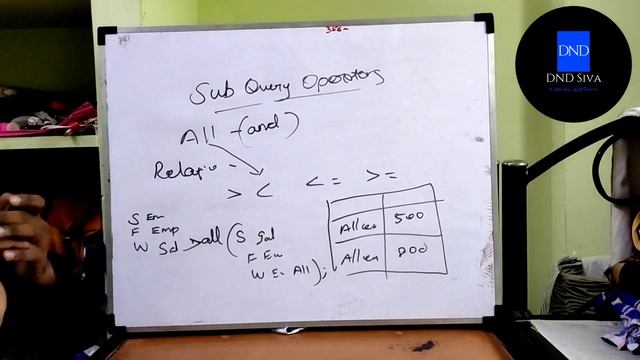 Sub Query Operators
All - (and)
Relatio -
> < <= >=
S En
F Emp
W Sal >all (S Sal
F Em
W En All);
Allen 500
Allen 800
DND
DND SIVA